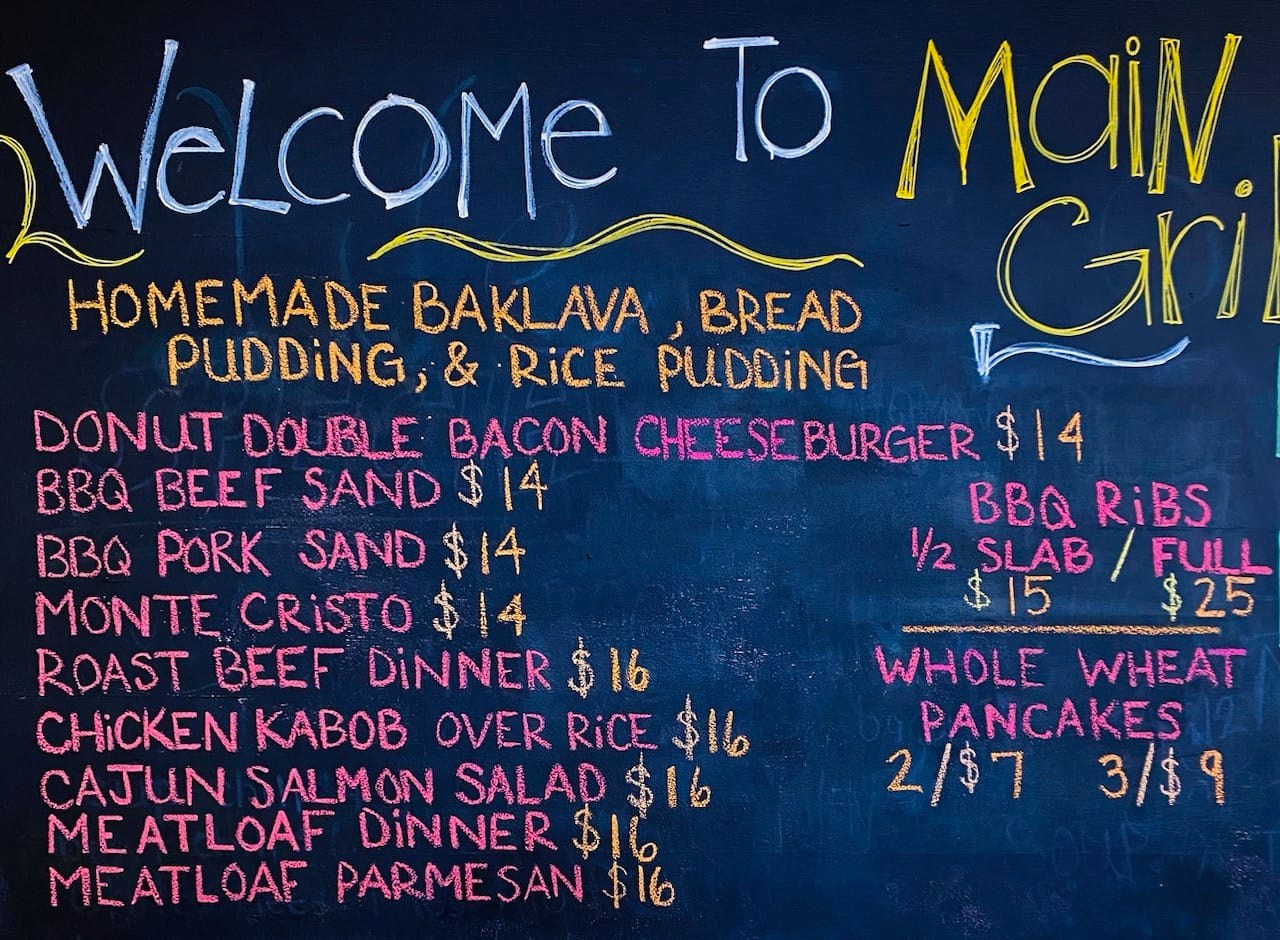 WeLcOMe To MaiN
Gril
HOMEMADE BAKLAVA, BREAD
PUDDiNG, & RiCE PUDDiNG
DONUT DOUBLE BACON CHEESEBURGER $14
BBQ BEEF SAND $14
BBQ PORK SAND $14
MONTE CRiSTO $14
ROAST BEEF DiNNER $16
CHiCKEN KABOB OVER RiCE $16
CAJUN SALMON SALAD $16
MEATLOAF DiNNER $16
MEATLOAF PARMESAN $16
BBQ RiBS
1/2 SLAB / FULL
$15 $25
WHOLE WHEAT
PANCAKES
2/$7 3/$9